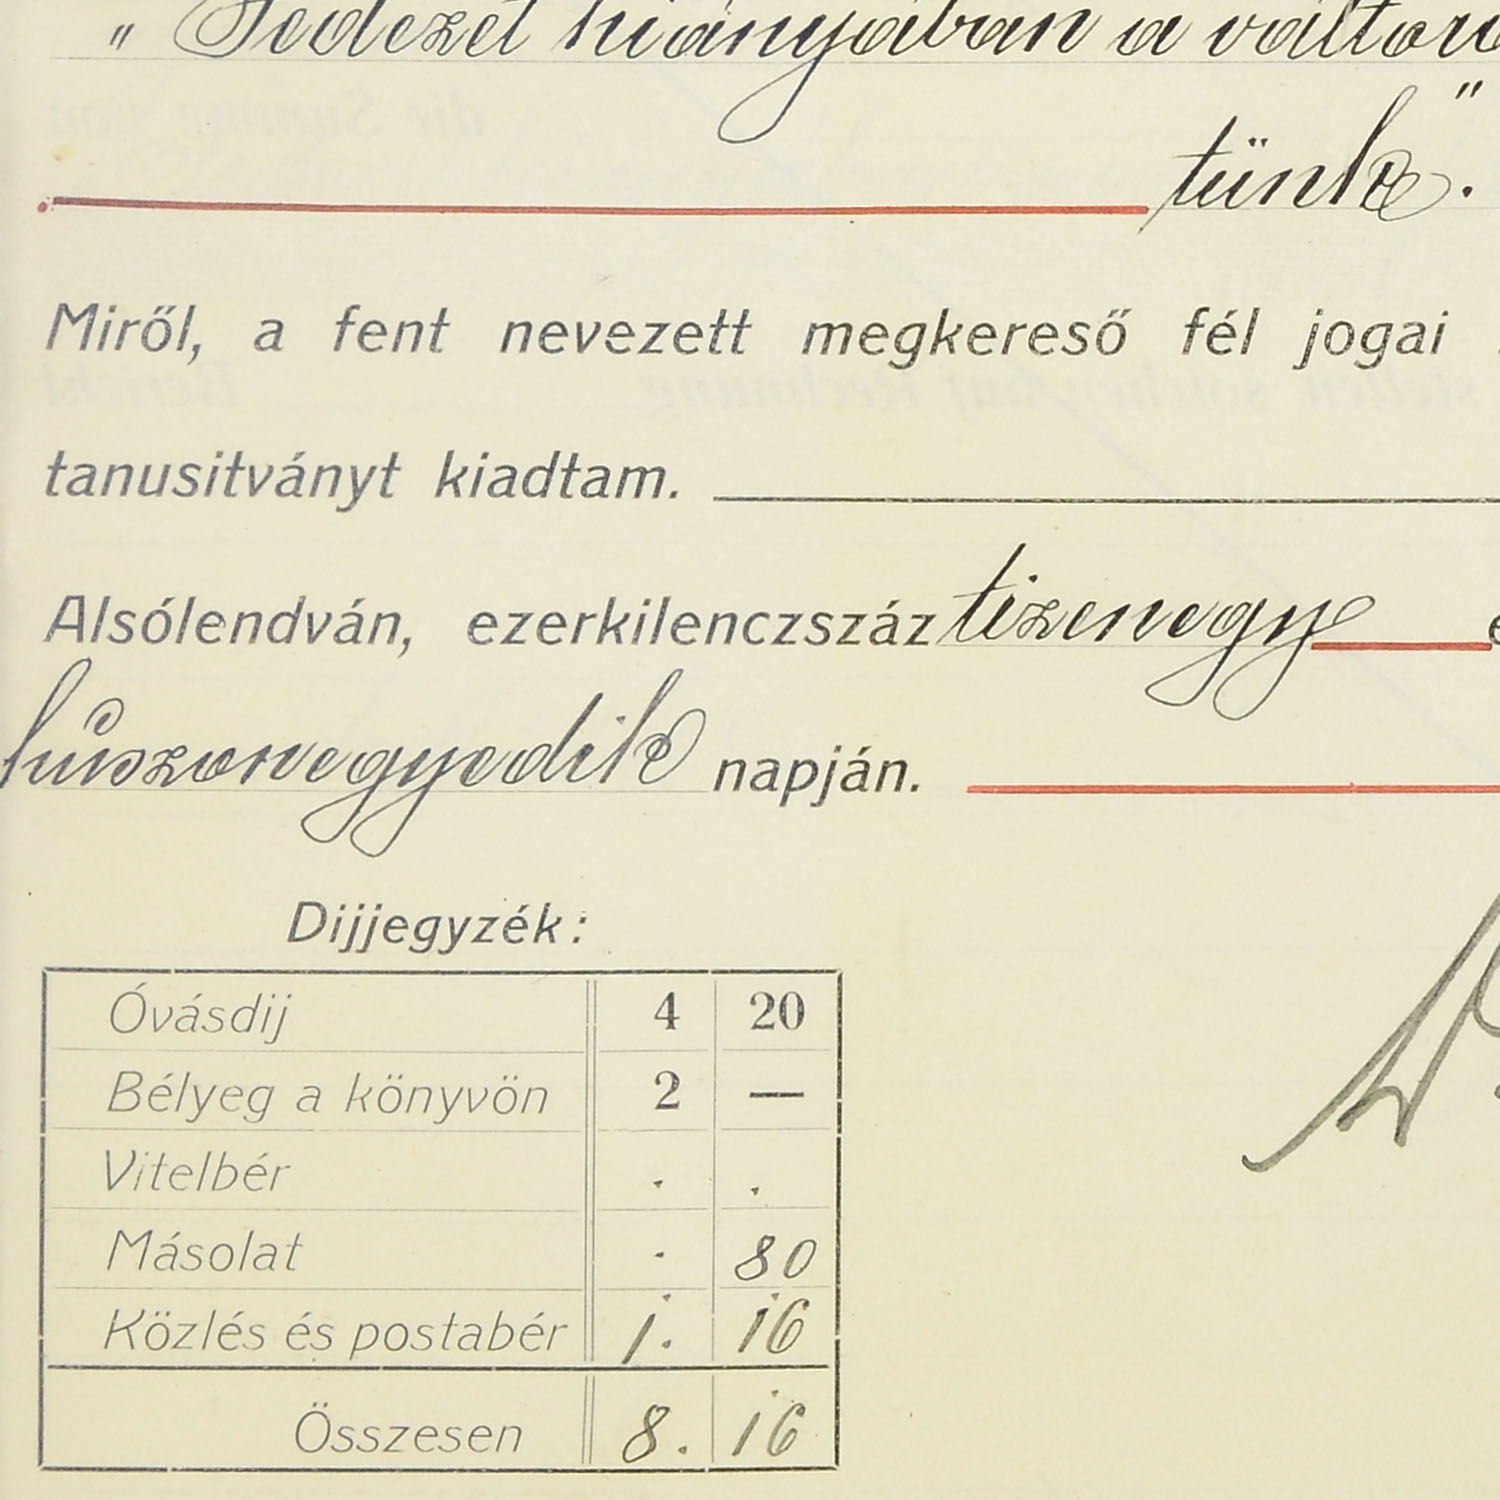 " Fedezet hiányában a váltó
tünk."
Miről, a fent nevezett megkereső fél jogai
tanusitványt kiadtam.
Alsólendván, ezerkilenczszáz tizenegy
huszonegyedik napján.
Dijjegyzék:
Óvásdij 4 20
Bélyeg a könyvön 2 —
Vitelbér . .
Másolat . 80
Közlés és postabér 1. 16
Összesen 8. 16